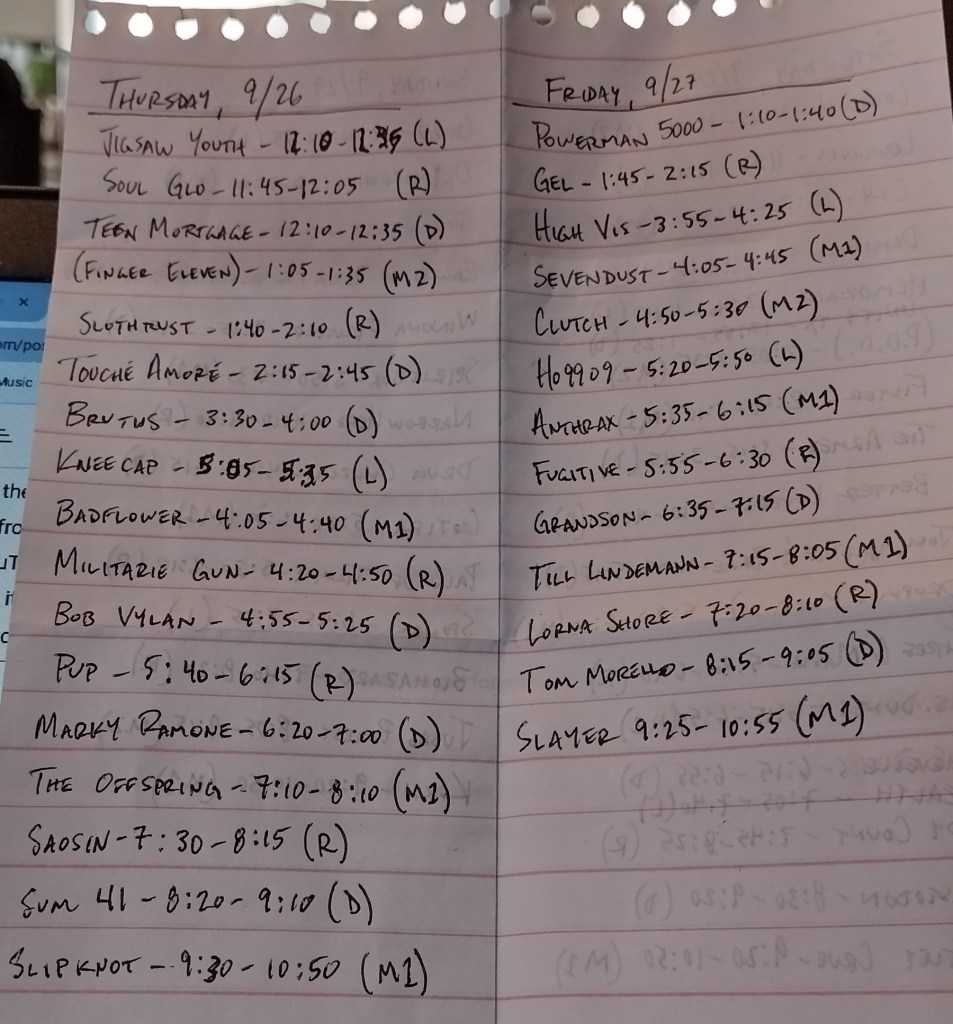 THURSDAY, 9/26
JIGSAW YOUTH - 12:10-12:35 (L)
SOUL GLO - 11:45-12:05 (R)
TEEN MORTGAGE - 12:10-12:35 (D)
(FINGER ELEVEN) - 1:05-1:35 (M2)
SLOTHRUST - 1:40-2:10 (R)
TOUCHÉ AMORÉ - 2:15-2:45 (D)
BRUTUS - 3:30-4:00 (D)
KNEECAP - 5:05-5:35 (L)
BADFLOWER - 4:05-4:40 (M1)
MILITARIE GUN - 4:20-4:50 (R)
BOB VYLAN - 4:55-5:25 (D)
PUP - 5:40-6:15 (R)
MARKY RAMONE - 6:20-7:00 (D)
THE OFFSPRING - 7:10-8:10 (M1)
SAOSIN - 7:30-8:15 (R)
SUM 41 - 8:20-9:10 (D)
SLIPKNOT - 9:30-10:50 (M1)
FRIDAY, 9/27
POWERMAN 5000 - 1:10-1:40 (D)
GEL - 1:45-2:15 (R)
HIGH VIS - 3:55-4:25 (L)
SEVENDUST - 4:05-4:45 (M1)
CLUTCH - 4:50-5:30 (M2)
HO9909 - 5:20-5:50 (L)
ANTHRAX - 5:35-6:15 (M1)
FUGITIVE - 5:55-6:30 (R)
GRANDSON - 6:35-7:15 (D)
TILL LINDEMANN - 7:15-8:05 (M1)
LORNA SHORE - 7:20-8:10 (R)
TOM MORELLO - 8:15-9:05 (D)
SLAYER 9:25-10:55 (M1)